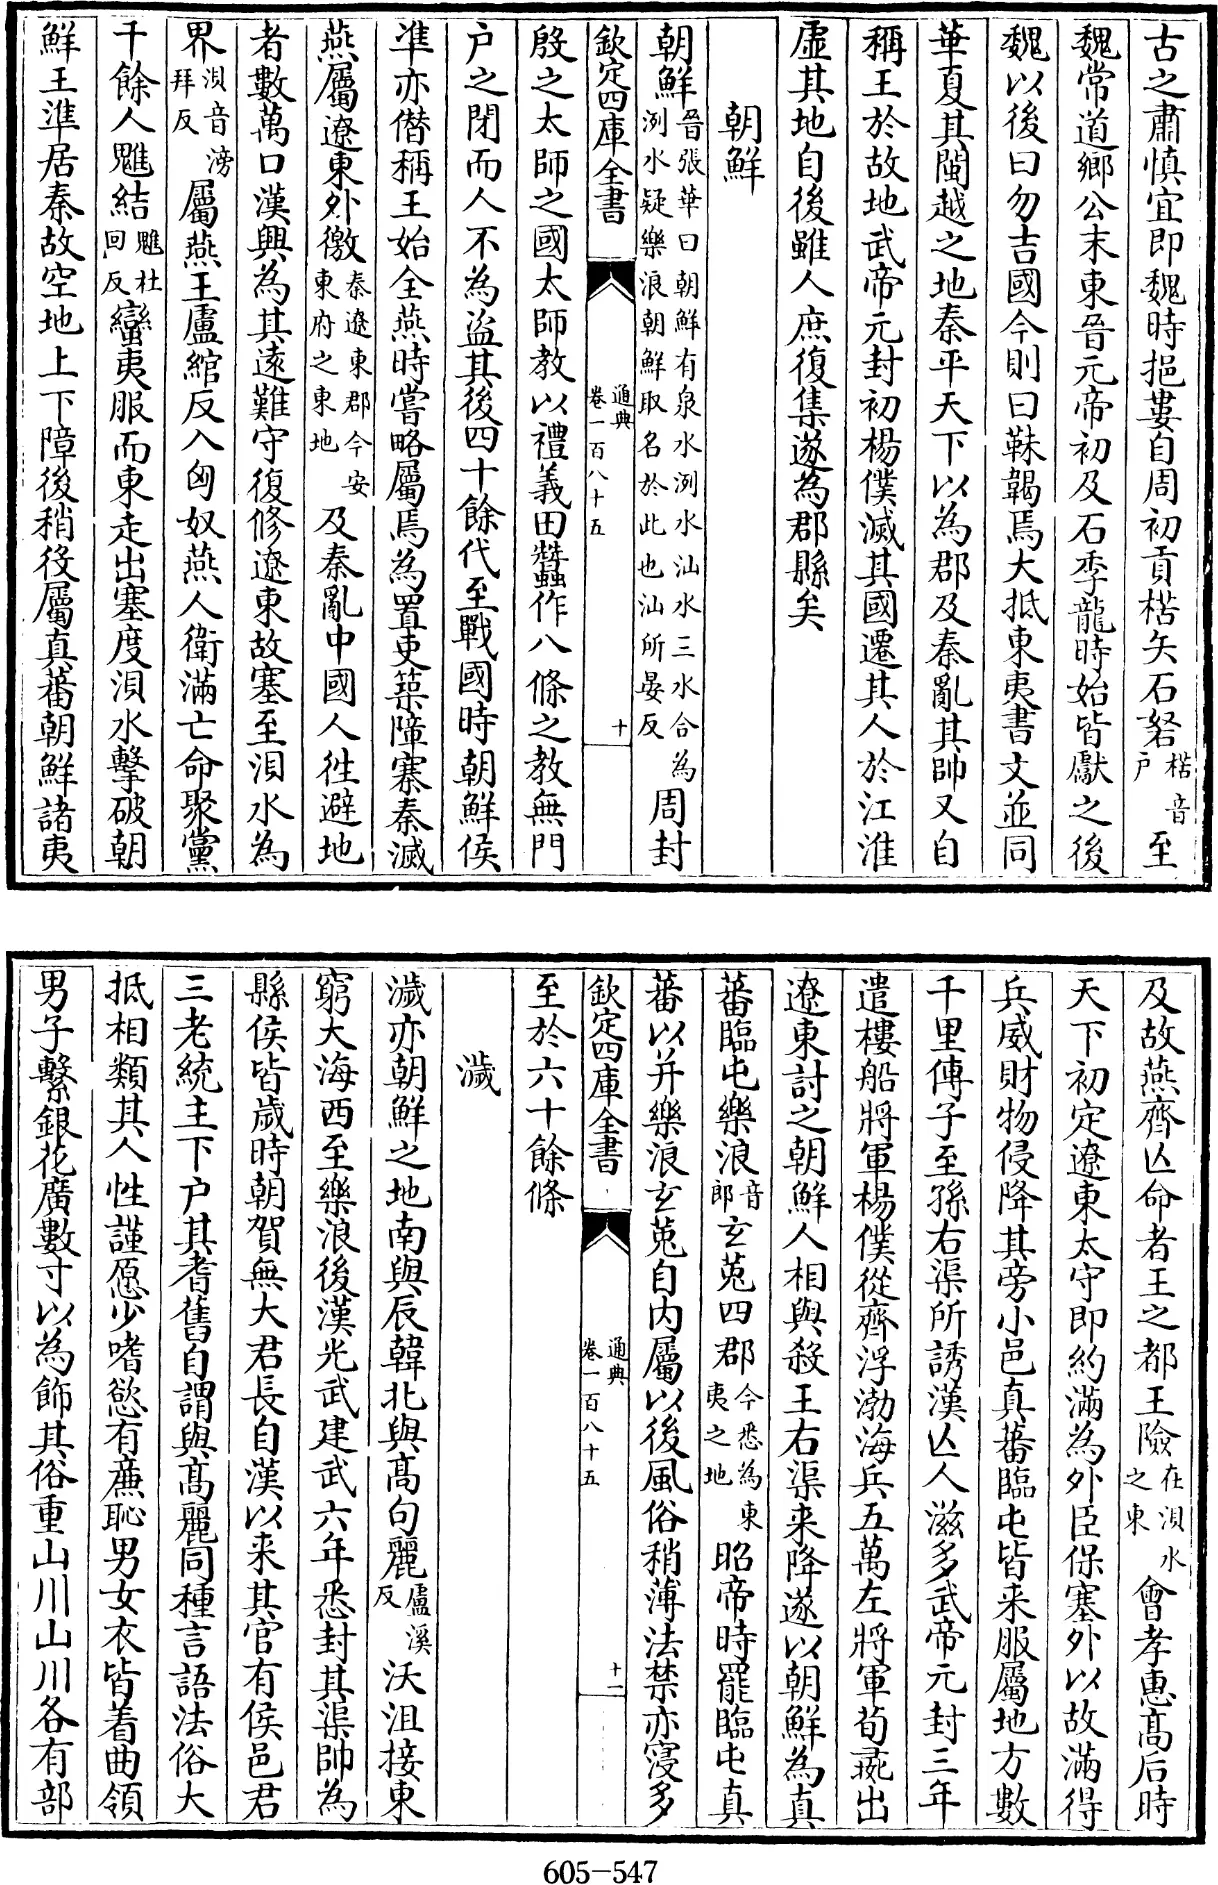 古之肅慎宜即魏時挹婁自周初貢楛矢石砮楛音戶至
魏常道鄉公末東晉元帝初及石季龍時始皆獻之後
魏以後曰勿吉國今則曰靺鞨焉大抵東夷書文並同
華夏其閩越之地秦平天下以為郡及秦亂其帥又自
稱王於故地武帝元封初楊僕滅其國遷其人於江淮
虛其地自後雖人庶復集遂為郡縣矣
朝鮮
朝鮮晉張華曰朝鮮有泉水洌水汕水三水合為洌水疑樂浪朝鮮取名於此也汕所晏反周封
欽定四庫全書
通典
卷一百八十五
十
殷之太師之國太師教以禮義田蠶作八條之教無門
户之閉而人不為盜其後四十餘代至戰國時朝鮮侯
準亦僭稱王始全燕時嘗略屬焉為置吏築障塞秦滅
燕屬遼東外徼秦遼東郡今安東府之東地及秦亂中國人徃避地
者數萬口漢興為其遠難守復修遼東故塞至浿水為
界浿音滂拜反屬燕王盧綰反入匈奴燕人衛滿亡命聚黨
千餘人魋結魋杜回反蠻夷服而東走出塞度浿水擊破朝
鮮王準居秦故空地上下障後稍役屬真蕃朝鮮諸夷
及故燕齊亾命者王之都王險在浿水之東會孝惠高后時
天下初定遼東太守即約滿為外臣保塞外以故滿得
兵威財物侵降其旁小邑真蕃臨屯皆来服屬地方數
千里傳子至孫右渠所誘漢亾人滋多武帝元封三年
遣樓船將軍楊僕從齊浮渤海兵五萬左將軍荀彘出
遼東討之朝鮮人相與殺王右渠来降遂以朝鮮為真
蕃臨屯樂浪音郎玄菟四郡今悉為東夷之地昭帝時罷臨屯真
蕃以并樂浪玄菟自内屬以後風俗稍薄法禁亦寖多
欽定四庫全書
通典
卷一百八十五
十二
至於六十餘條
濊
濊亦朝鮮之地南與辰韓北與高句麗盧溪反沃沮接東
窮大海西至樂浪後漢光武建武六年悉封其渠帥為
縣侯皆歲時朝賀無大君長自漢以来其官有侯邑君
三老統主下户其耆舊自謂與高麗同種言語法俗大
抵相類其人性謹愿少嗜慾有廉恥男女衣皆着曲領
男子繫銀花廣數寸以為飾其俗重山川山川各有部
605-547